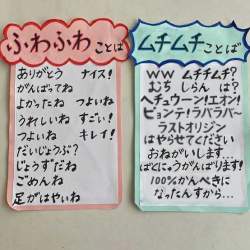 ふわふわことば
ありがとう ナイス!
がんばってね
よかったね つよいね
うれしいね すごい!
つよいね キレイ!
だいじょうぶ?
じょうずだね
ごめんね
足がはやいね
ムチムチことば
WW ムチチムチ?
むち しらん は?
ヘチュウーン!エオン!
ピョンテ!ラバラバ〜
ラストオリジン
はやらせてください
おねがいします…
ぱとにゅうがんばります!
100%かんぺきに
なったんすから…